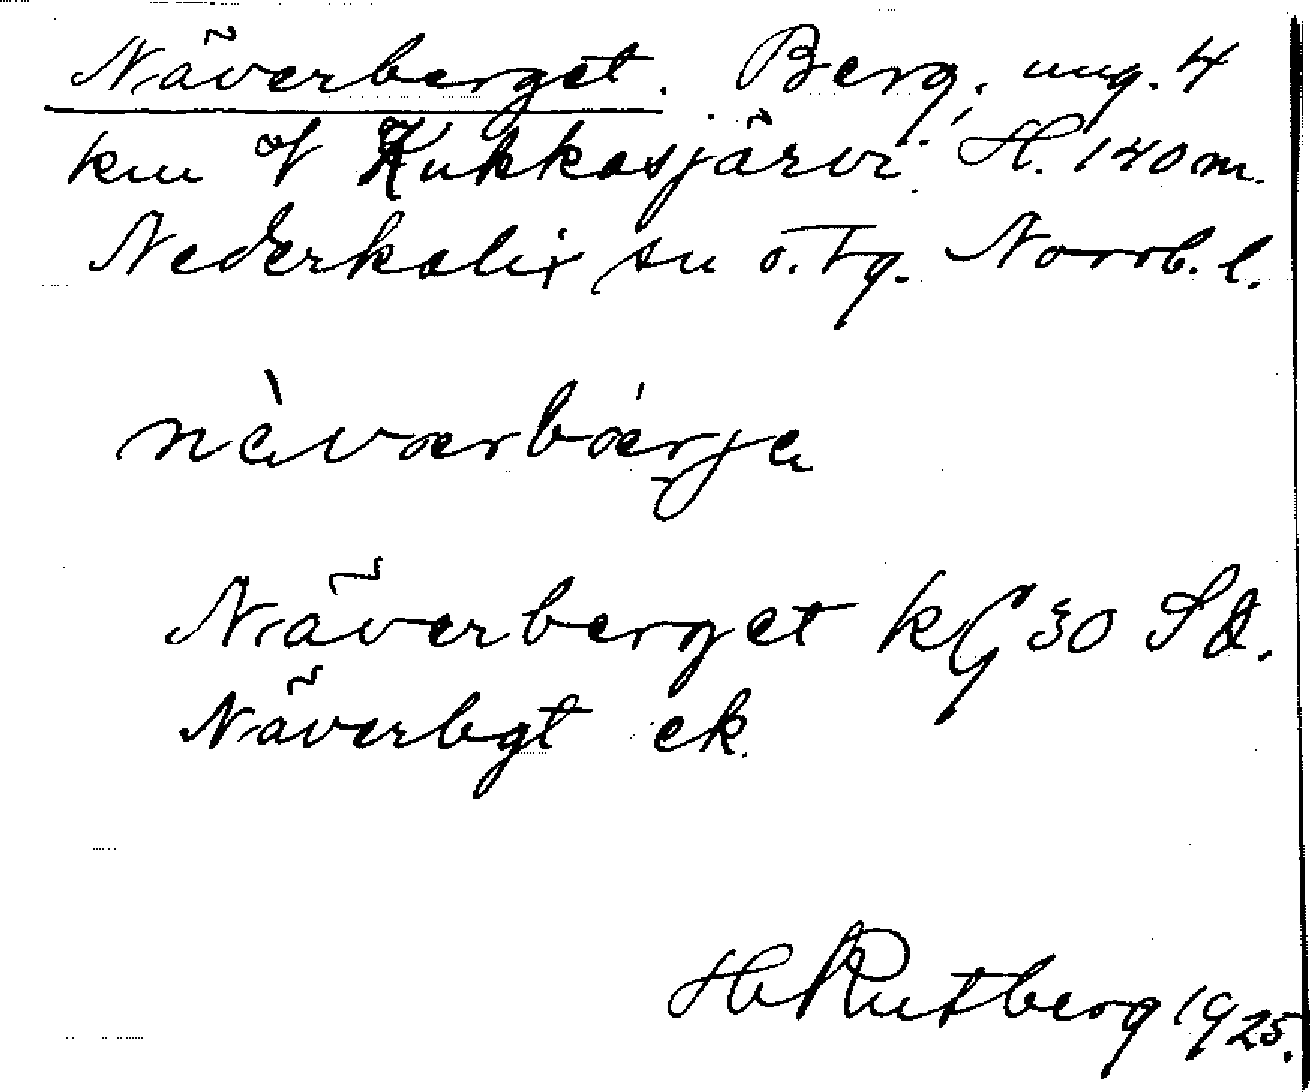 Näverberget. Berg, ung. 4
km V Kukkasjärvi. H. 140 m.
Nederkalix sn o. tg. Norrb. l.
nä̀værbærje
Näverberget kG 30 Sd.
Näverbgt ek.
H Rutberg 1925.